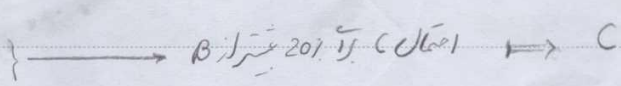 C ↦ احتمال C 20% بیشتر از B ← {